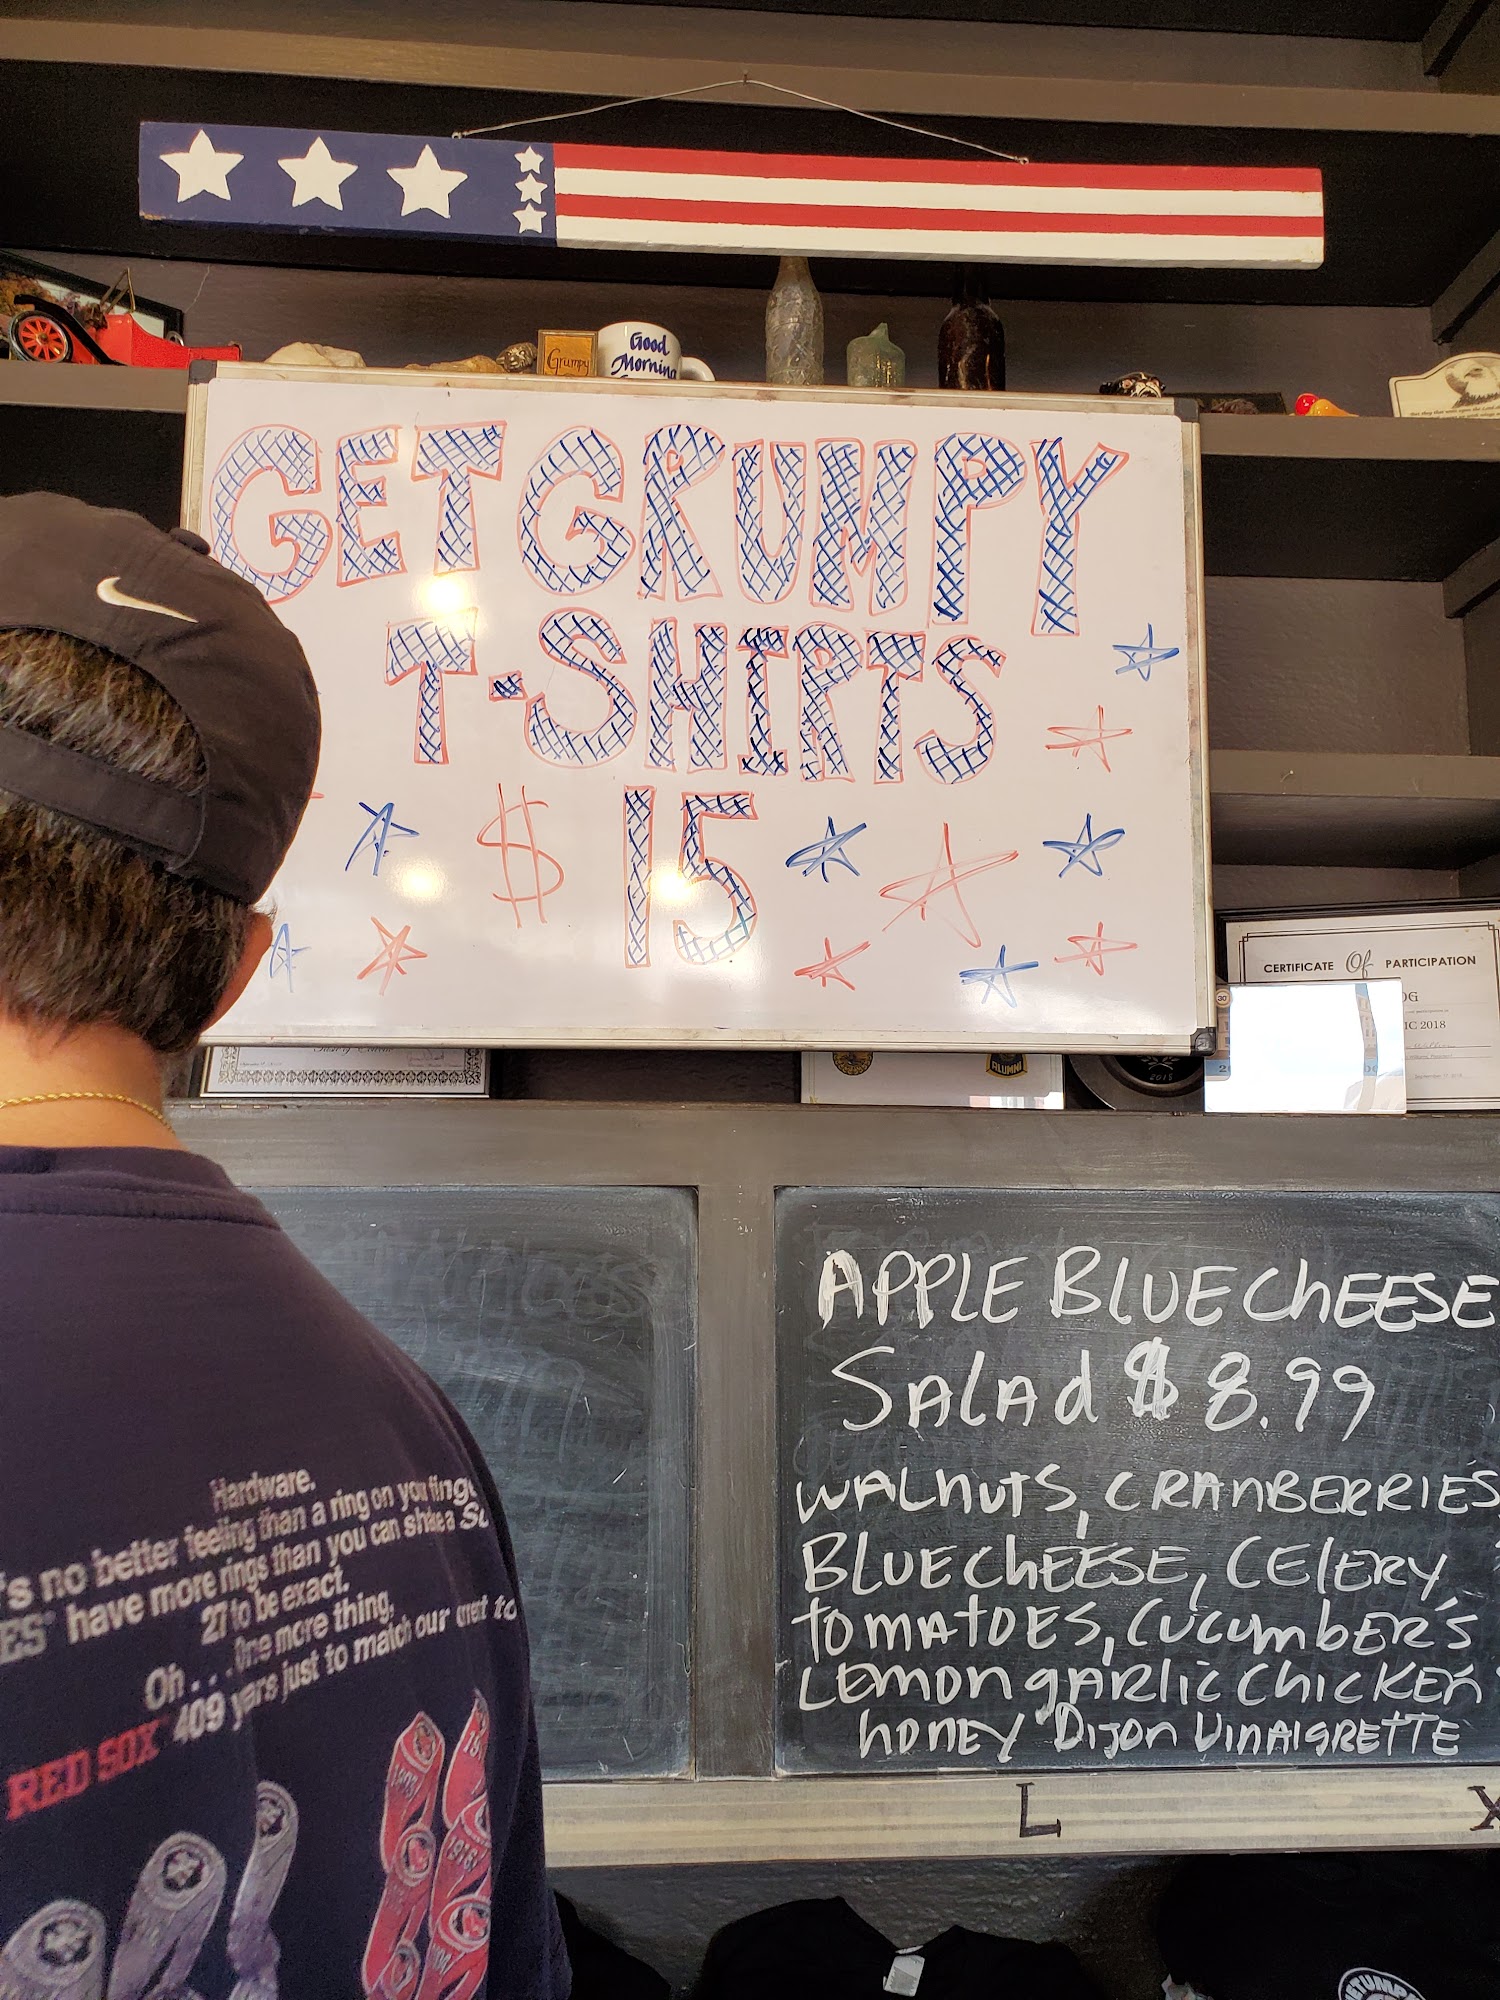 Grumpy
Good
Morning
GET GRUMPY
T-SHIRTS
$ 15
CERTIFICATE Of PARTICIPATION
OG
IC 2018
ALUMNI
2018
APPLE BLUE CHEESE
SALAd $ 8.99
WALNUTS, CRANBERRIES
BLUE CHEESE, CELERY,
TOMATOES, CUCUMBER'S
LEMON GARLIC CHICKEN
HONEY DIJON VINAIGRETTE
L
X
Hardware.
's no better feeling than a ring on your finge
ES have more rings than you can shake a
27 to be exact.
Oh... One more thing,
RED SOX 409 years just to match our